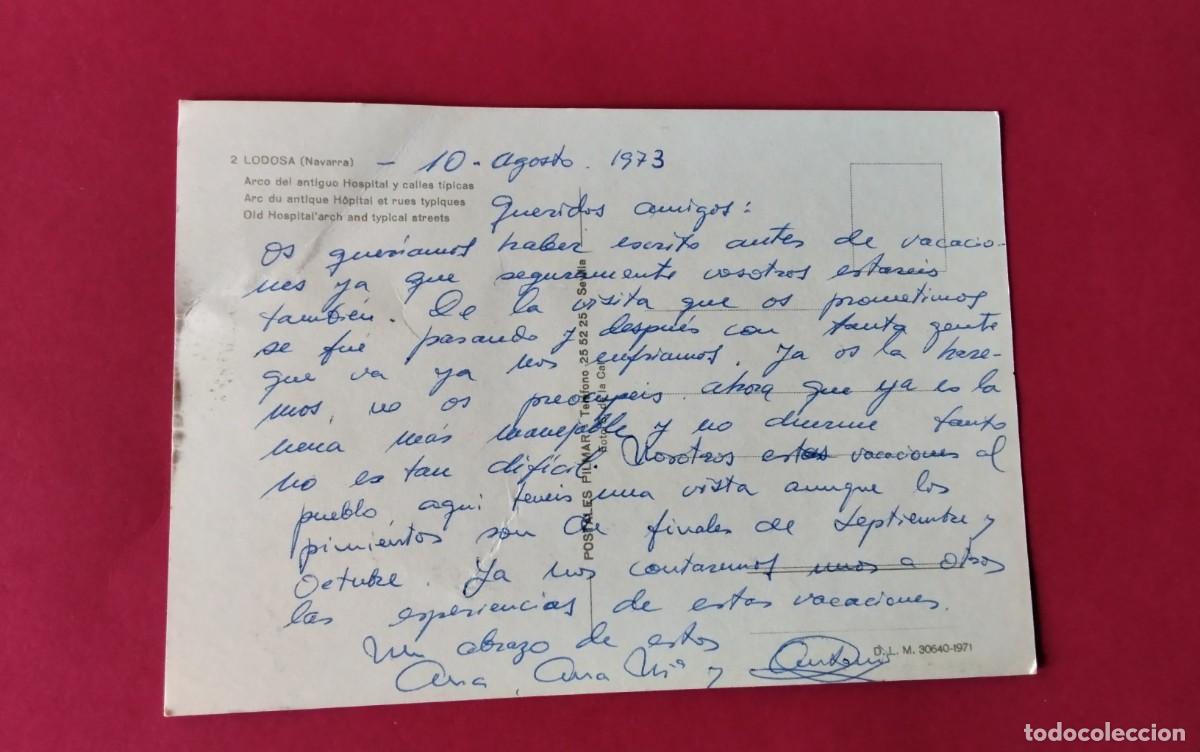 2 LODOSA (Navarra) - 10 - agosto. 1973
Arco del antiguo Hospital y calles típicas
Arc du antique Hôpital et rues typiques
Old Hospital'arch and typical streets
Queridos amigos:
Os queriamos haber escrito antes de vacacio-
nes ya que seguramente vosotros estareis
también. De la visita que os prometimos
se fué pasando y después con tanta gente
que va ya nos enfriamos. Ya os la hare-
mos, no os preocupeis ahora que ya es la
nena más manejable y no duerme tanto
no es tan difícil. Nosotros estas vacaciones al
pueblo, aqui teneis una vista aunque los
pimientos son de finales de Septiembre y
Octubre. Ya nos contaremos unos a otros
las experiencias de estas vacaciones.
Un abrazo de estos
Ana, Ana Mª y Antonio
POSTALES PILMAR. Teléfono 25 52 25 Sevilla
de la
D. L. M. 30640-1971
todocoleccion